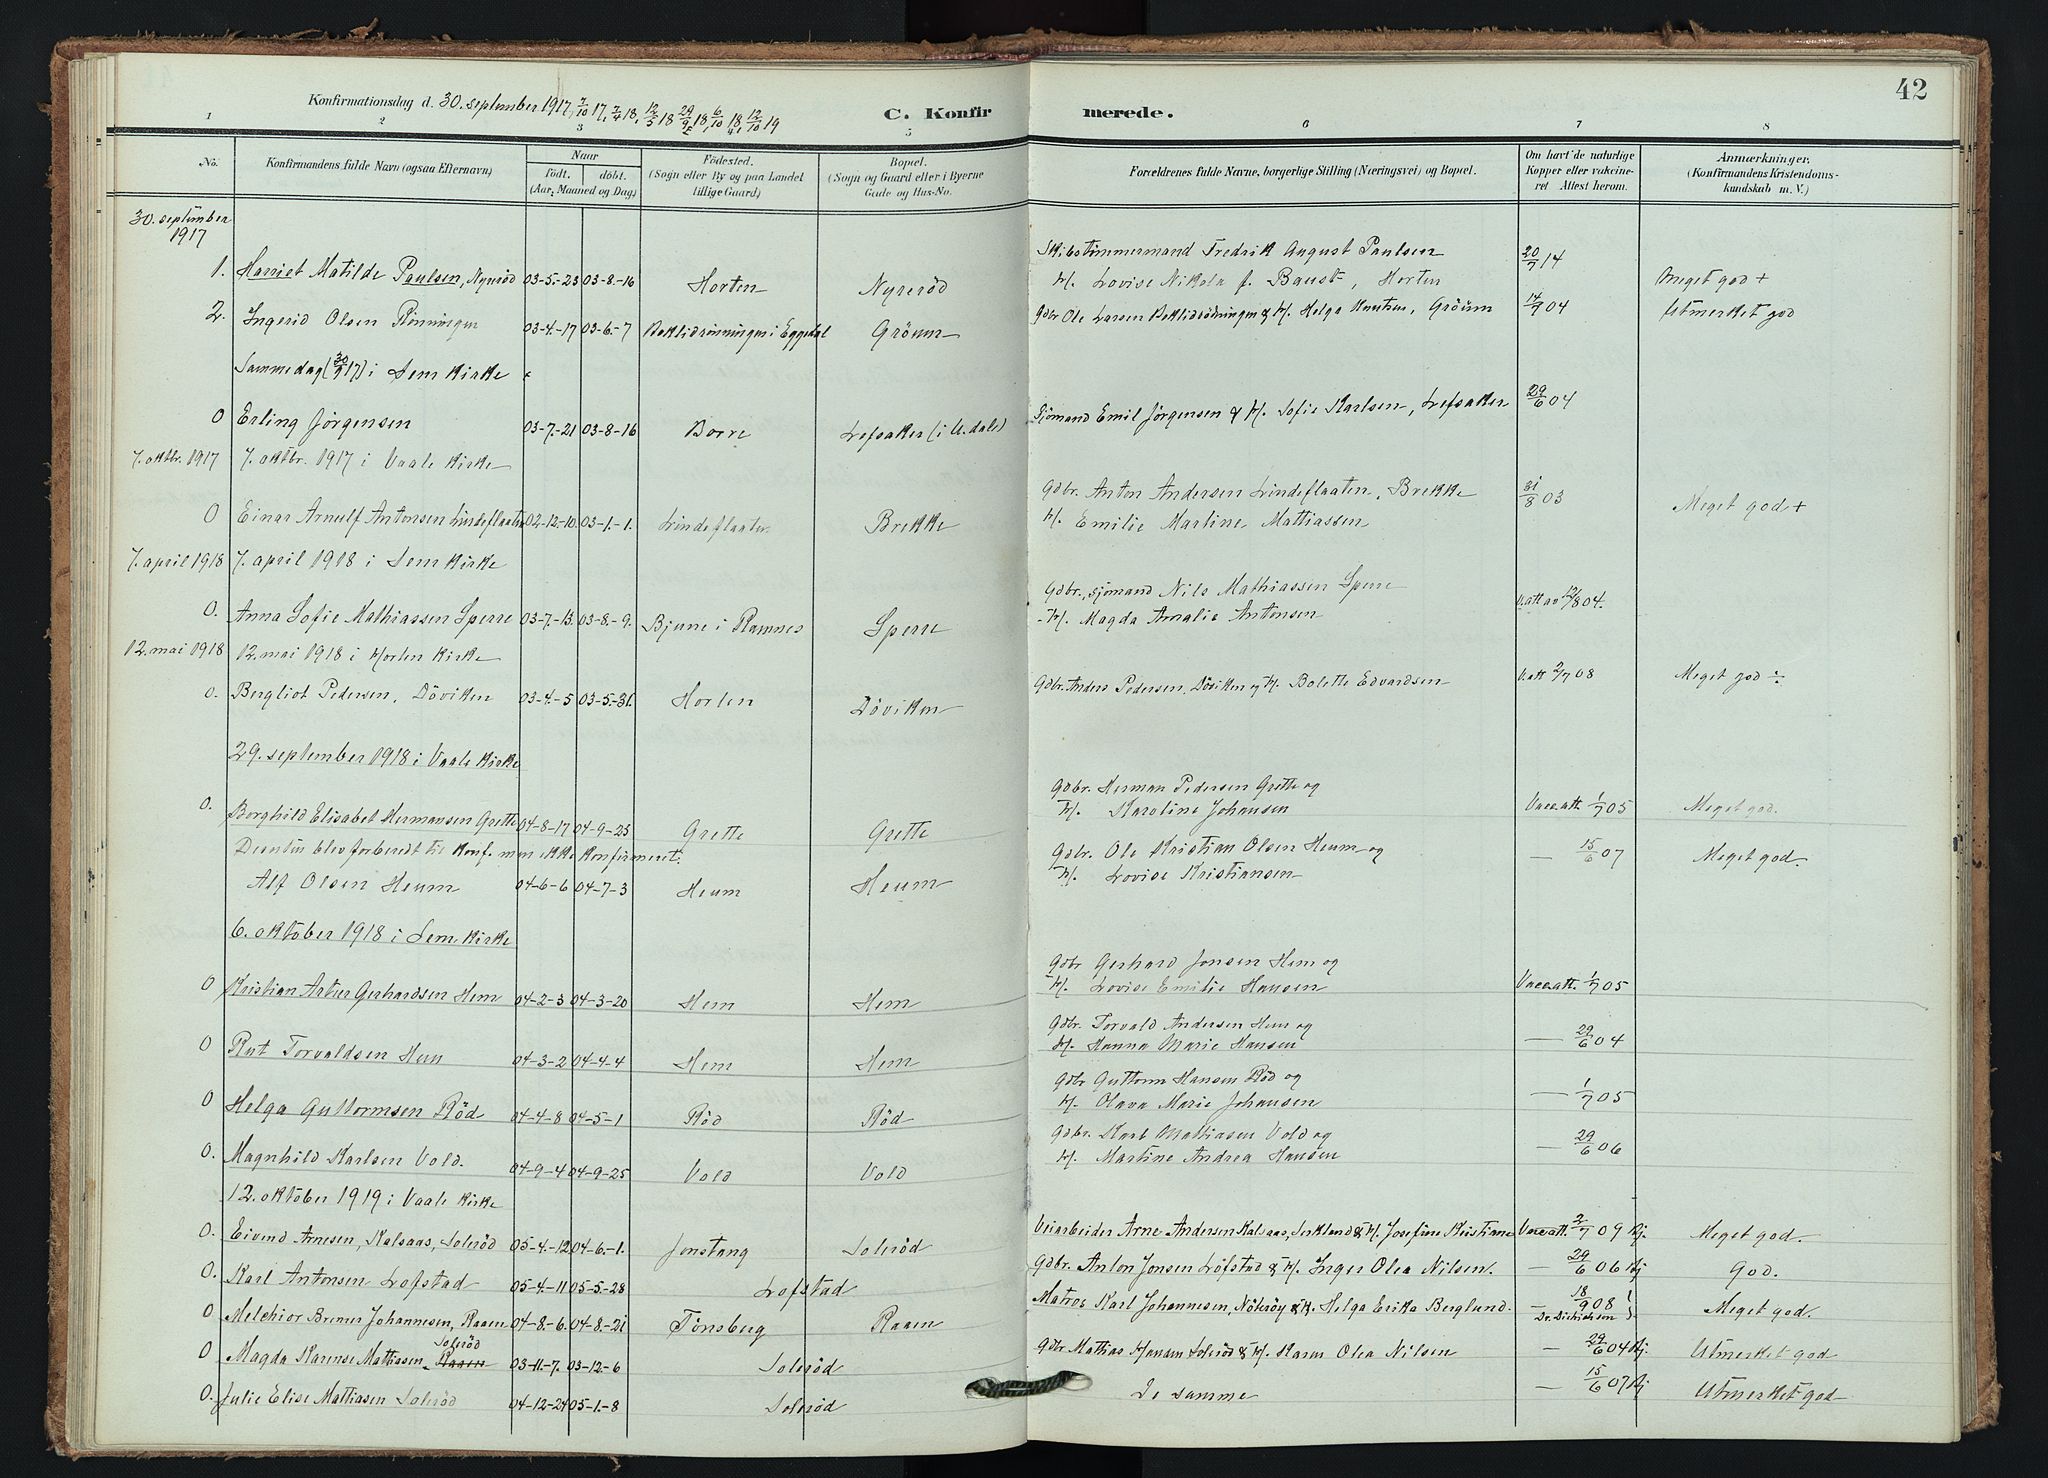 42
Konfirmationsdag d. 30. september 1917, 7/10 17, 7/4 18, 12/5 18 29/9 18, 6/10 18, 12/10 19
C. Konfirmerede.
1 2 3 4 5 6 7 8
No. Konfirmandens fulde Navn (ogsaa Efternavn) Naar födt. döbt. (Aar, Maaned og Dag) Födested. (Sogn eller By og paa Landet tillige Gaard) Bopæl. (Sogn og Gaard eller i Byerne Gade og Hus-No. Forældrenes fulde Navne, borgerlige Stilling (Næringsvei) og Bopæl. Om havt de naturlige Kopper eller vakcineret Attest herom. Anmærkninger. (Konfirmandens Kristendomskundskab m. V.)
30. september
1917
Skibstömmermand Fredrik August Paulsen
1. Harriet Matilde Paulsen, Nyrerød 03-5-23 03-8-16 Horten Nyrerød H. Lovise Nikola f. Baust, Horten 20/7 14 Meget god +
2. Ingerid Olsen Rönningen 03-4-17 03-6-7 i Eggedal Gröum Gdbr Ole Larsen & H. Helga Knutsen, Gröum 14/9 04 Utmerket god
Samme dag (30/9 17) i Sem Kirke
0 Erling Jörgensen 03-7-21 03-8-16 Borre Lefsaker (i U. dale) Sjömand Emil Jörgensen & H. Sofie Karlsen, Lefsaker 29/6 04
7. oktbr. 1917 7. oktbr. 1917 i Vaale Kirke
Gdbr. Anton Andersen Lindeflaaten, Brekke
0 Einar Arnulf Antonsen Lindeflaaten 02-12-10 03-1-1. Lindeflaaten Brekke H. Emilie Martine Mattiassen 31/8 03 Meget god +
7. april 1918 7. april 1918 i Sem Kirke
Gdbr., sjömand Nils Mathiassen Sperre
0. Anna Sofie Mathiassen Sperre 03-7-13. 03-8-9. Bjune i Ramnes Sperre H. Magda Amalie Antonsen V. att av 12/8 04.
12. mai 1918 12. mai 1918 i Horten Kirke
0. Bergliot Pedersen, Döviken 03-4-5 03-5-31. Horten Döviken Gdbr. Anders Pedersen, Döviken og H. Bolette Edvardsen V. att 2/7 08 Meget god ÷
29. september 1918 i Vaale Kirke
Gdbr. Herman Pedersen Grette og
0. Borghild Elisabet Hermansen Grette 04-8-17 04-9-25 Grette Grette H. Karoline Johansen Vacc. att. 1/7 05 Meget god.
Desuten blev forberedt til Konf. men ikke Konfirmeret:
Gdbr. Ole Kristian Olsen Heum og
Alf Olsen Heum 04-6-6 04-7-3 Heum Heum H. Lovise Kristiansen — 15/6 07 Meget god.
6. oktober 1918 i Sem Kirke
Gdbr Gerhard Jonsen Hem og
0 Kristian Artur Gerhardsen Hem 04-2-3 04-3-20 Hem Hem H. Lovise Emilie Hansen Vacc. att. 1/7 05
Gdbr. Torvald Andersen Hem og
0 Rut Torvaldsen Hem 04-3-2 04-4-4 Hem Hem H. Hanna Marie Hansen — 29/6 04
Gdbr Guttorm Hansen Röd og
0 Helga Guttormsen Röd 04-4-8 04-5-1 Röd Röd H. Olava Marie Johansen — 1/7 05
Gdbr. Karl Mattiasen Vold og
0. Magnhild Karlsen Vold. 04-9-4 04-9-25 Vold Vold H. Martine Andrea Hansen — 29/6 06
12. oktober 1919 i Vaale Kirke
0. Eivind Arnesen, Kalsaas, Soleröd 05-4-12 04-6-1. Jonstang Soleröd Veiarbeider Arne Andersen Kalsaas, & H. Josefine Kristiane Vacc. att. 2/7 09 Meget god.
0. Karl Antonsen Lofstad 05-4-11 05-5-28 Lofstad Gdbr. Anton Jonsen Löfstad & H. Inger Olea Nilsen. — 29/6 06 God.
0 Melchior Bremer Johannesen, Raaen 04-8-6. 04-8-21 Tönsberg Raaen Matros Karl Johannesen, Nöteröy & H. Helga Erika Berglund. — 18/9 08 Meget god.
0 Magda Karense Mattiasen Raaen Soleröd 03-11-7. 03-12-6 Soleröd Gdbr Mathias Hansen Soleröd & H. Karen Olea Nilsen — 29/6 04 Utmerket god
0. Julie Elise Mattiasen Soleröd 04-12-24 05-1-8 Soleröd De samme — 15/6 07 Utmerket god